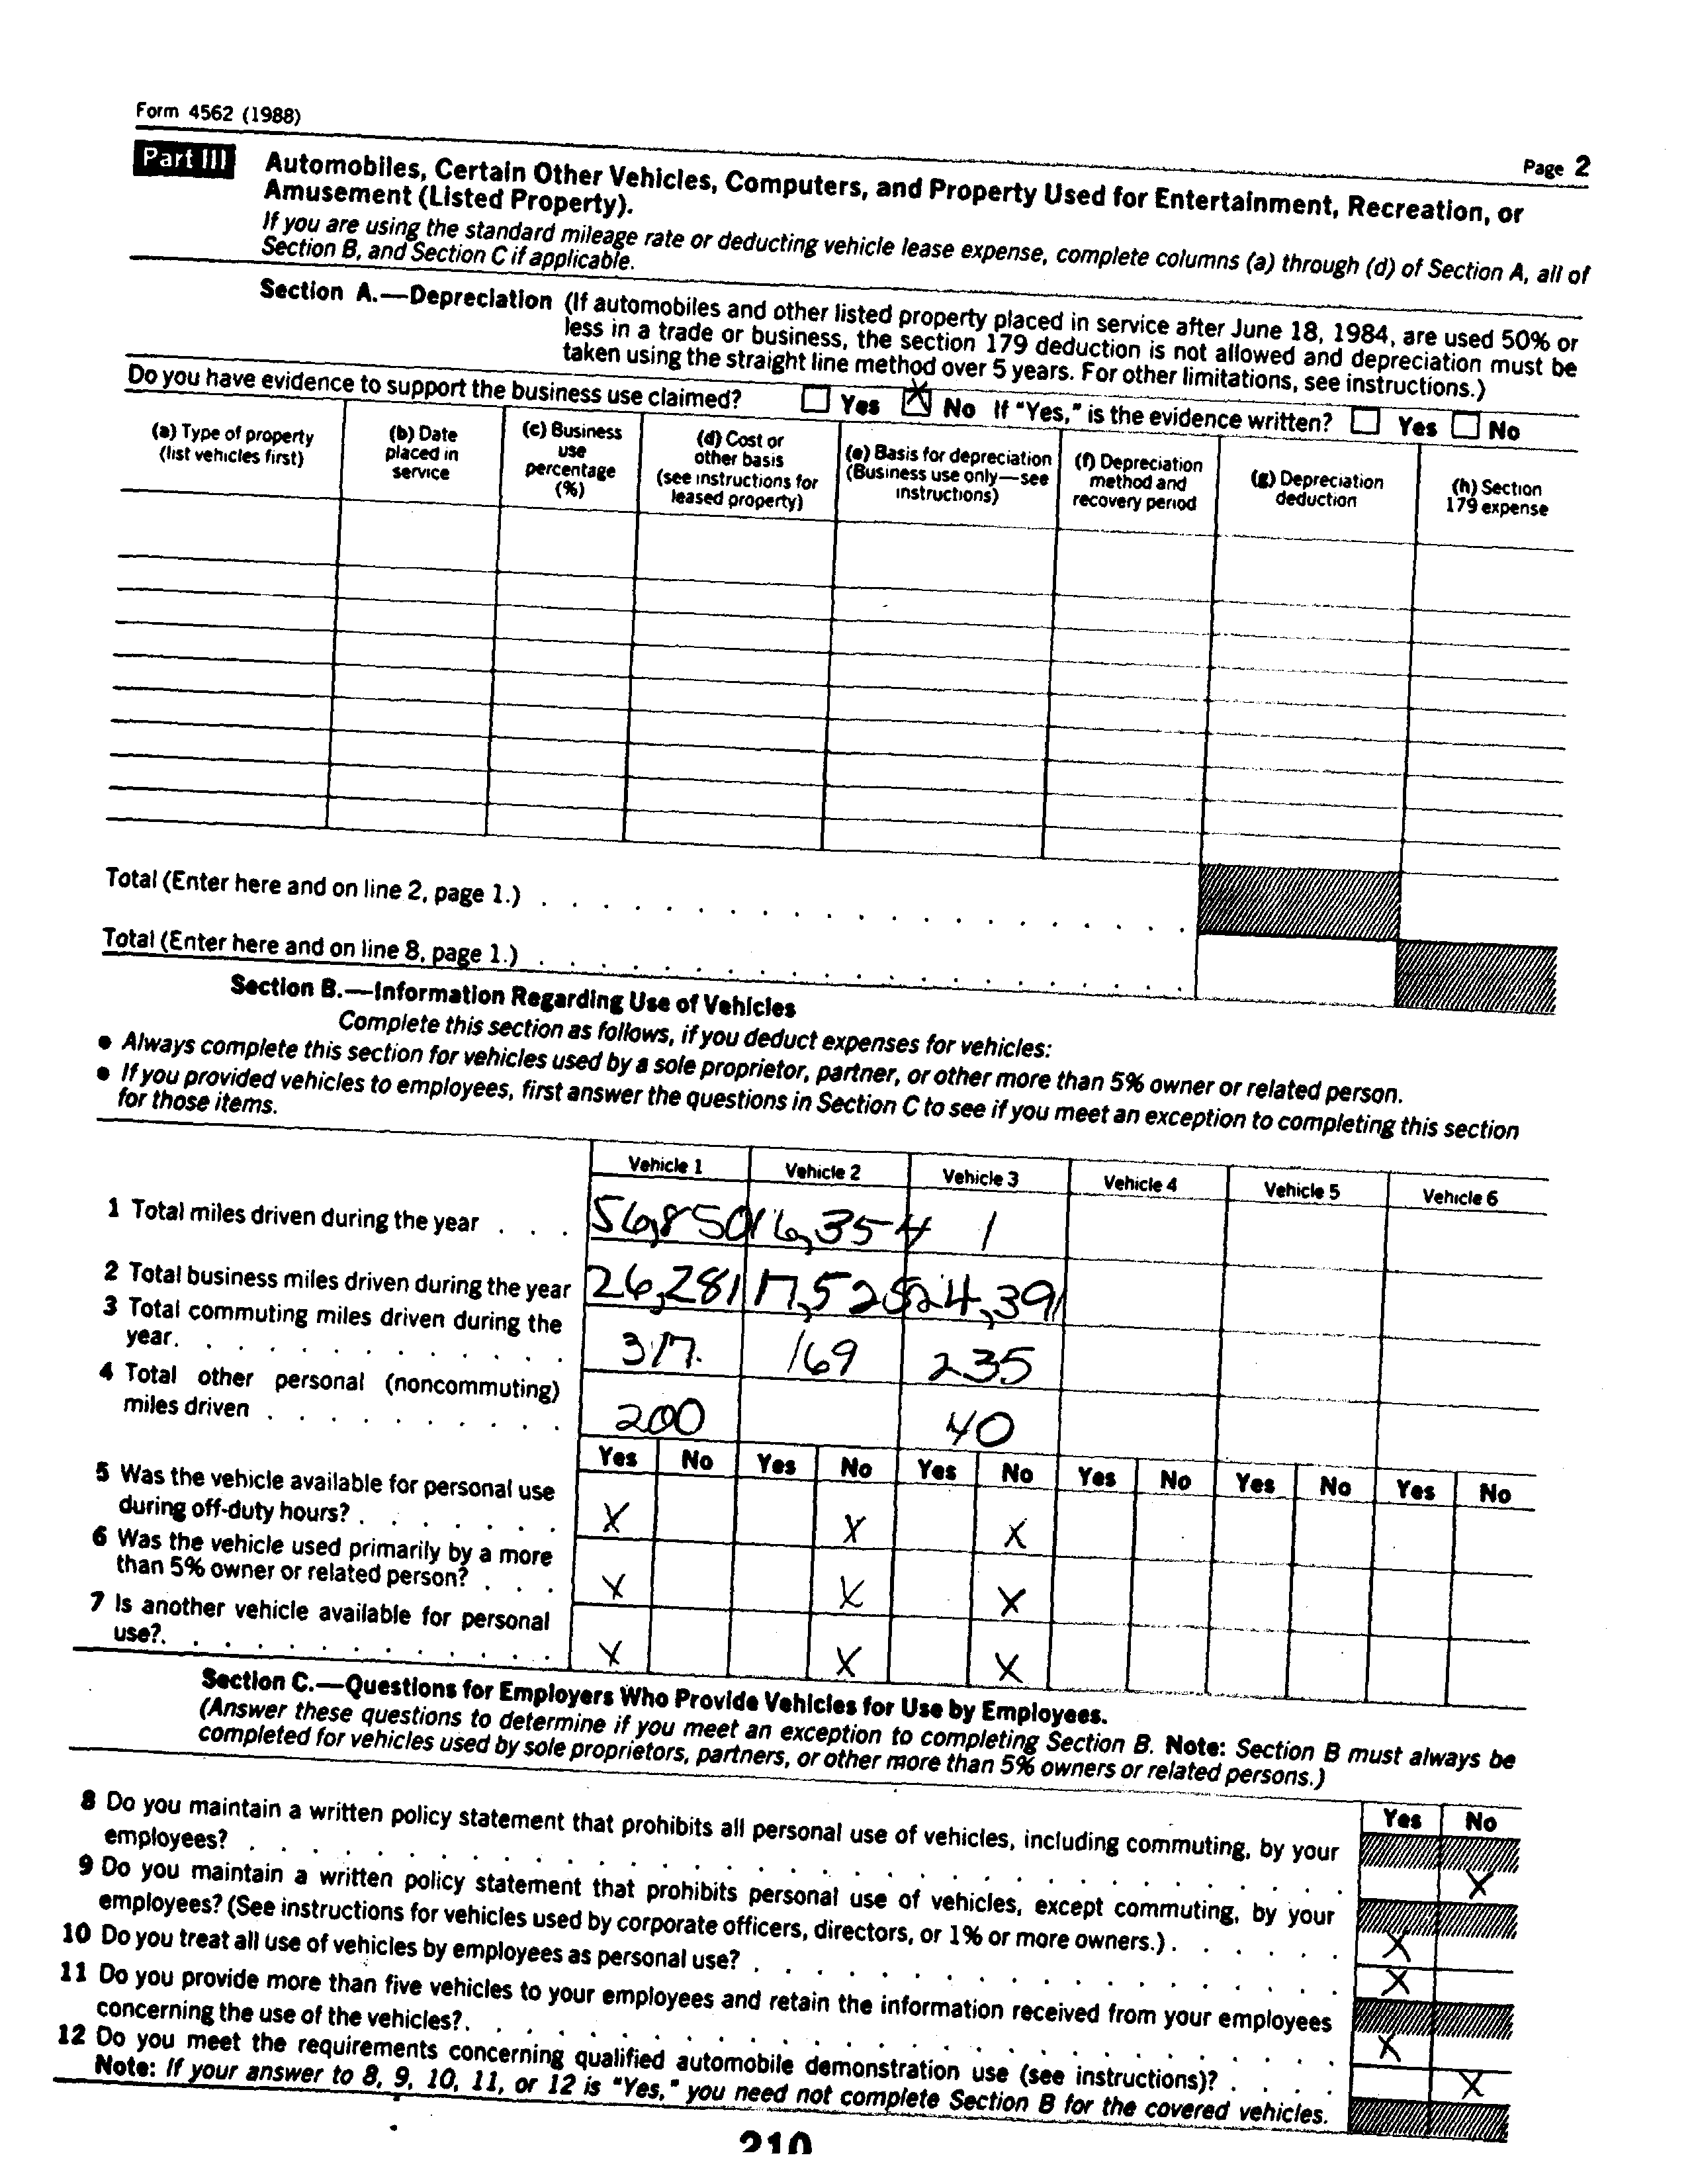 Form 4562 (1988)
Page 2
Part III Automobiles, Certain Other Vehicles, Computers, and Property Used for Entertainment, Recreation, or
Amusement (Listed Property).
If you are using the standard mileage rate or deducting vehicle lease expense, complete columns (a) through (d) of Section A, all of
Section B, and Section C if applicable.
Section A.—Depreciation (If automobiles and other listed property placed in service after June 18, 1984, are used 50% or
less in a trade or business, the section 179 deduction is not allowed and depreciation must be
taken using the straight line method over 5 years. For other limitations, see instructions.)
Do you have evidence to support the business use claimed? Yes X No If "Yes," is the evidence written? Yes No
(a) Type of property
(list vehicles first)
(b) Date
placed in
service
(c) Business
use
percentage
(%)
(d) Cost or
other basis
(see instructions for
leased property)
(e) Basis for depreciation
(Business use only—see
instructions)
(f) Depreciation
method and
recovery period
(g) Depreciation
deduction
(h) Section
179 expense
Total (Enter here and on line 2, page 1.)
Total (Enter here and on line 8, page 1.)
Section B.—Information Regarding Use of Vehicles
Complete this section as follows, if you deduct expenses for vehicles:
● Always complete this section for vehicles used by a sole proprietor, partner, or other more than 5% owner or related person.
● If you provided vehicles to employees, first answer the questions in Section C to see if you meet an exception to completing this section
for those items.
Vehicle 1 Vehicle 2 Vehicle 3 Vehicle 4 Vehicle 5 Vehicle 6
1 Total miles driven during the year . . . 56,850 16,354 1
2 Total business miles driven during the year 26,281 17,525 24,391
3 Total commuting miles driven during the
year. 317. 169 235
4 Total other personal (noncommuting)
miles driven 200 40
Yes No Yes No Yes No Yes No Yes No Yes No
5 Was the vehicle available for personal use
during off-duty hours? X X X
6 Was the vehicle used primarily by a more
than 5% owner or related person? X X X
7 Is another vehicle available for personal
use?. X X X
Section C.—Questions for Employers Who Provide Vehicles for Use by Employees.
(Answer these questions to determine if you meet an exception to completing Section B. Note: Section B must always be
completed for vehicles used by sole proprietors, partners, or other more than 5% owners or related persons.)
Yes No
8 Do you maintain a written policy statement that prohibits all personal use of vehicles, including commuting, by your
employees? X
9 Do you maintain a written policy statement that prohibits personal use of vehicles, except commuting, by your
employees? (See instructions for vehicles used by corporate officers, directors, or 1% or more owners.) X
10 Do you treat all use of vehicles by employees as personal use? X
11 Do you provide more than five vehicles to your employees and retain the information received from your employees
concerning the use of the vehicles?. X
12 Do you meet the requirements concerning qualified automobile demonstration use (see instructions)? X
Note: If your answer to 8, 9, 10, 11, or 12 is "Yes," you need not complete Section B for the covered vehicles.
210